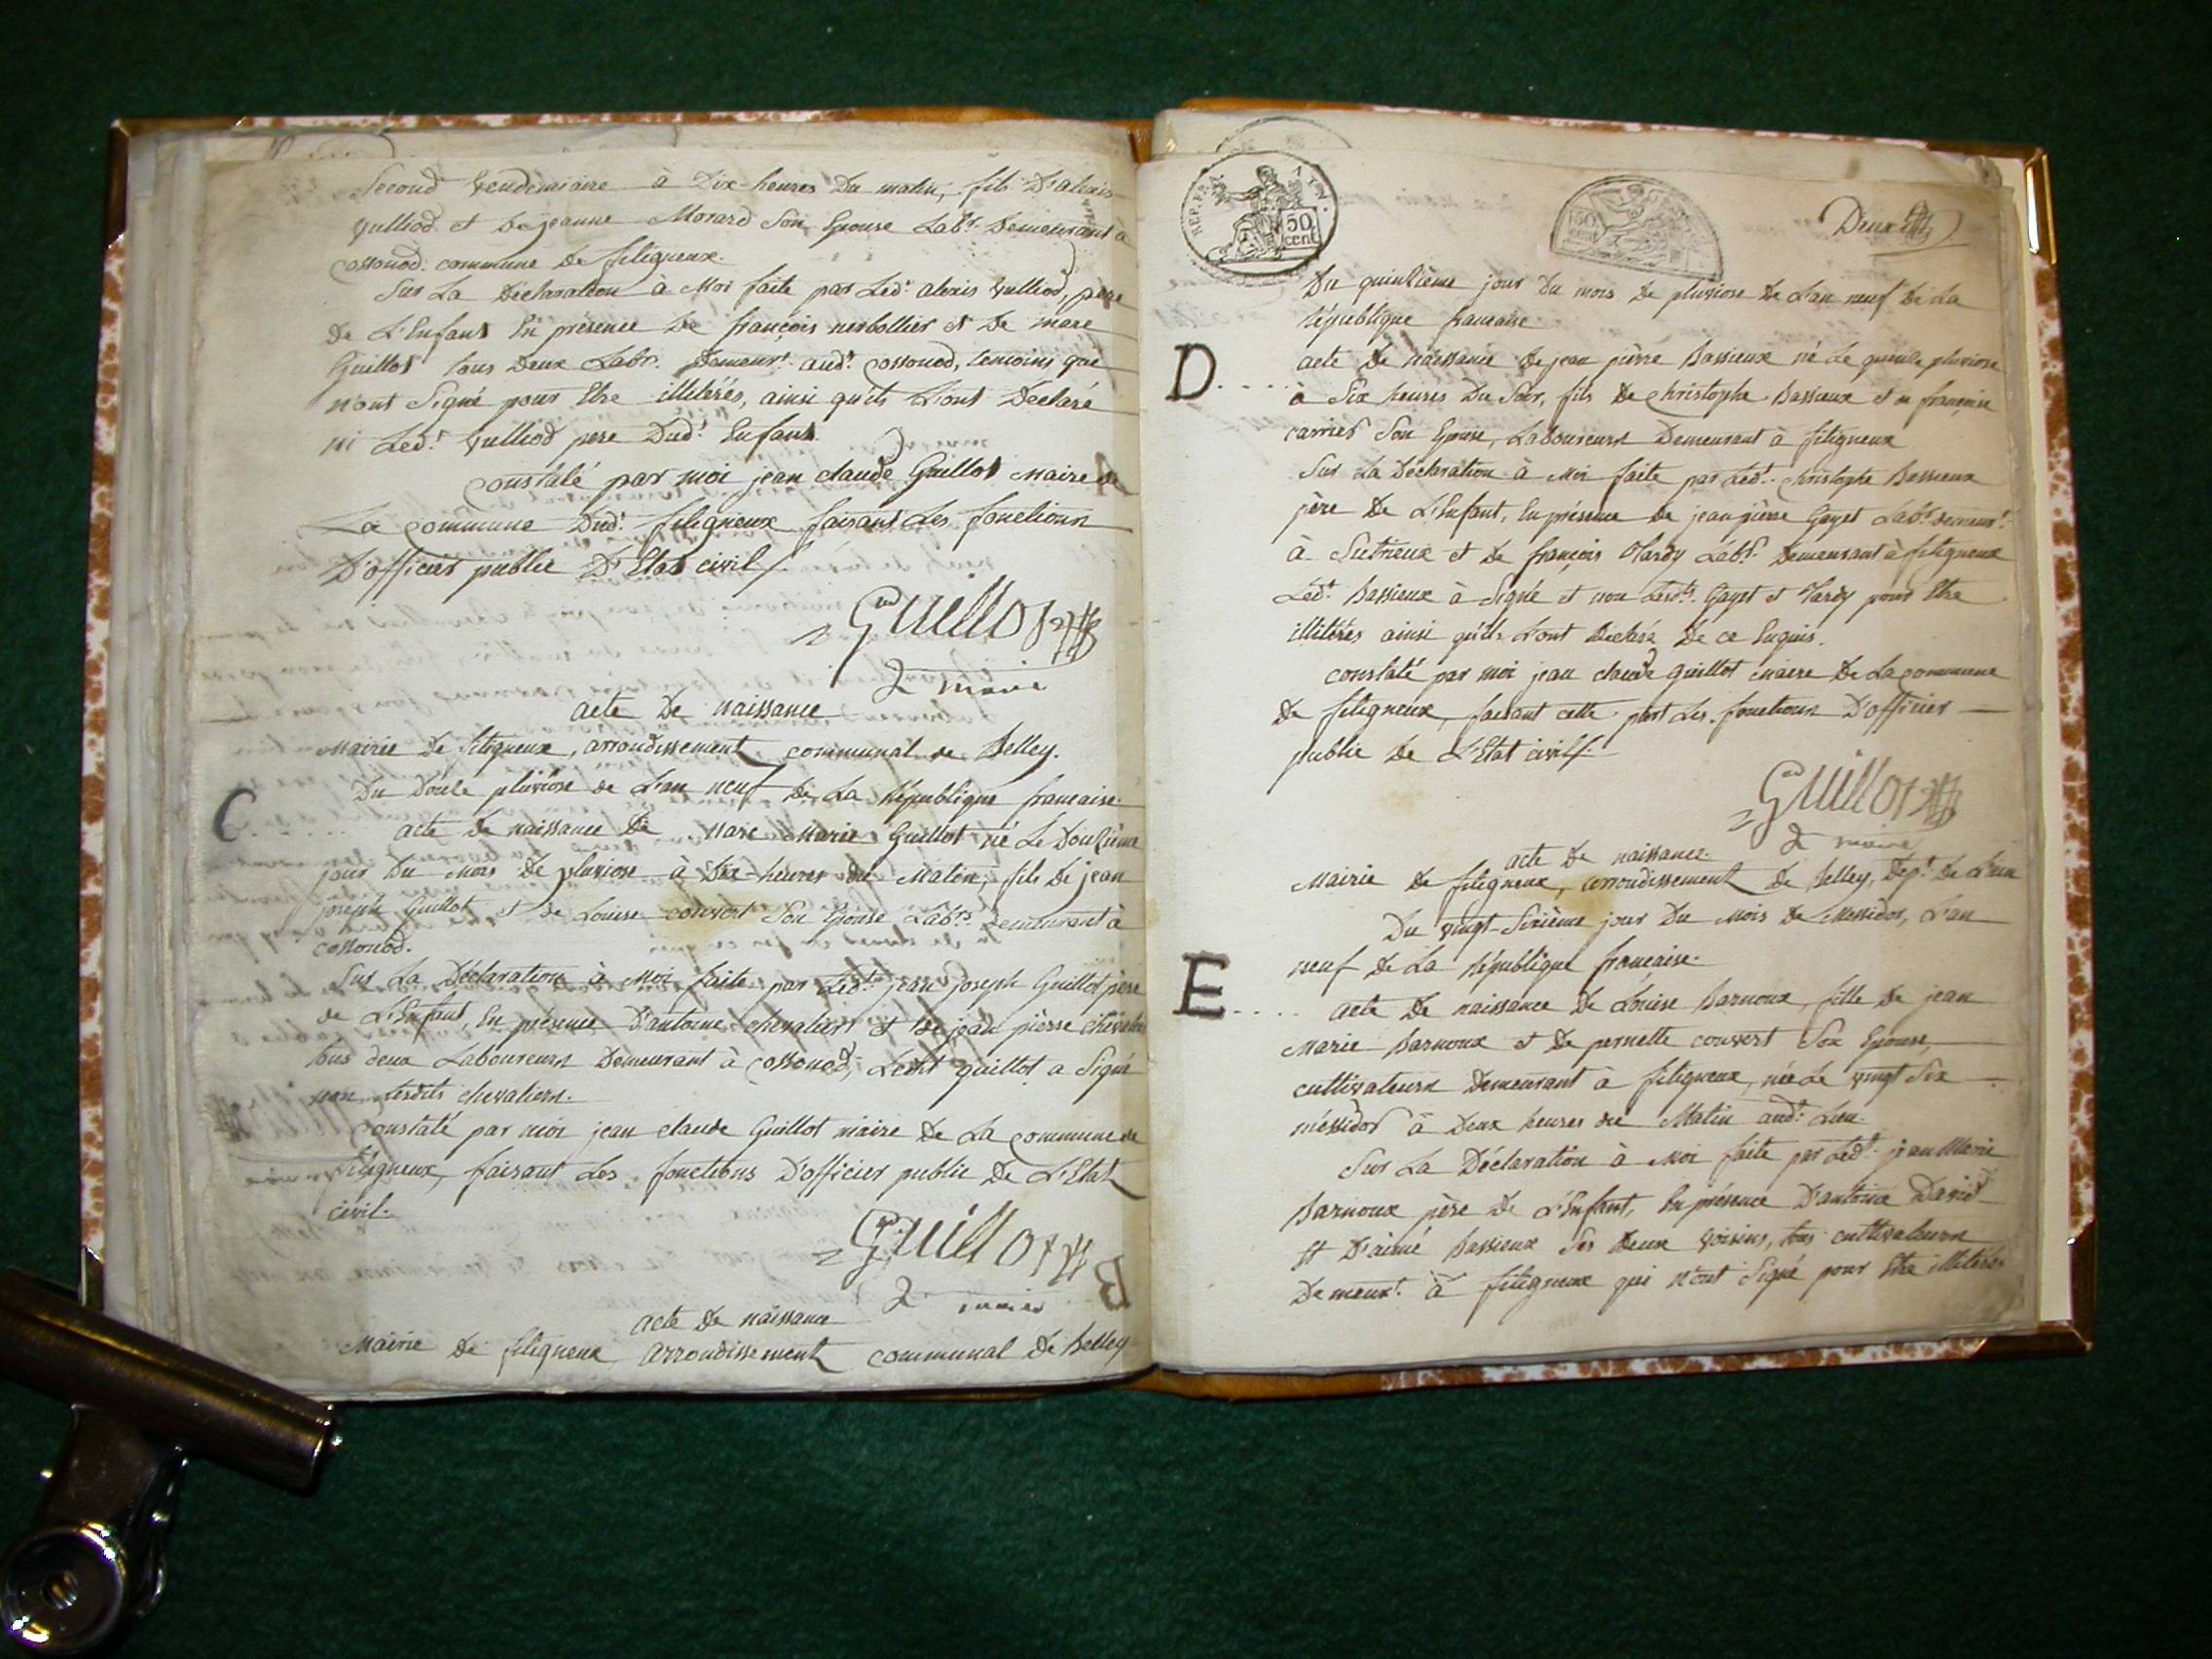 Second Vendemiaire à Dix-heures Du matin, fils D'alexis
Vulliod et De jeanne Morard Son Epouse Labrs. Demeurant à
Cossonod. commune De filigneux.
Sur La Déclaration à Moi faite par Ledt. alexis Vulliod, pere
De L'Enfant En présence De françois nerbollier et De marc
Guillot tous Deux Labrs. Demeurt. audt. Cossonod, temoins que
n'ont Signé pour Etre illitérés, ainsi qu'ils L'ont Déclaré
ni Ledt. Vulliod pere Dudt. Enfant.
Constaté par moi jean claude Guillot Maire de
La Commune Dudt. filigneux faisant Les fonctions
D'officier public D'Etat civil
Guillot
maire
acte De naissance
Mairie De filigneux, arrondissement communal de Belley.
Du Douze pluviose de L'an neuf De La République francaise.
C
acte De naissance De Marc Marie Guillot né Le Douzième
jour Du Mois De pluviose à Dix-heures du Matin, fils De jean
joseph Guillot et de Louise Convert Son Epouse Labrs. Demeurant à
Cossonod.
Sur La Déclaration à Moi faite par Ledt. jean joseph Guillot père
de L'Enfant, En présence D'antoine chevalier et De jean pierre chevalier
tous deux Laboureurs Demeurant à Cossonod, Ledit guillot a Signé
non lesdits chevaliers.
Constaté par moi jean claude Guillot maire De La Commune de
filigneux, faisant Les fonctions D'officier public De L'Etat
civil.
Guillot
maire
B
acte De naissance
Mairie De filigneux arrondissement communal De Belley
REP. FRA.
50
cent
Deux
Du quinzième jour Du mois De pluviose De L'an neuf De La
République francaise
D
acte De naissance De jean pierre Bassieux né Le quinze pluviose
à Six heures Du Soir, fils De Christophe Bassieux et De francoise
carrier Son Epouse, Laboureurs Demeurant à filigneux
Sur La Déclaration à Moi faite par Ledt. Christophe Bassieux
père De L'Enfant, En présence De jean pierre Gayet Labr. demeurt.
à Sutrieux et De françois Tardy Labr. Demeurant à filigneux
Ledt. Bassieux à Signé et non Lesdts. Gayet et Tardy pour Etre
illitérés ainsi qu'ils L'ont Déclaré De ce Enquis.
constaté par moi jean claude guillot maire De La Commune
De filigneux, faisant cette part Les fonctions D'officier
public De L'Etat civil
Guillot
maire
acte De naissance.
Mairie De filigneux, arrondissement De Belley, Dept. De L'ain
Du Vingt-Sixième jour Du Mois De Messidor, L'an
neuf De La République francaise.
E
acte De naissance De Louise Barnoux, fille De jean
Marie Barnoux et De pernette convert Son Epouse,
cultivateurs Demeurant à filigneux, née Le Vingt Six
méssidor à Deux heures du Matin audt. Lieu.
Sur La Déclaration à Moi faite par Ledt. jean Marie
Barnoux père De L'Enfant, En présence D'antoine David
Et D'aimé Bassieux Ses Deux Voisins, tous cultivateurs
Demeurt. à filigneux qui n'ont Signé pour Etre illitérés